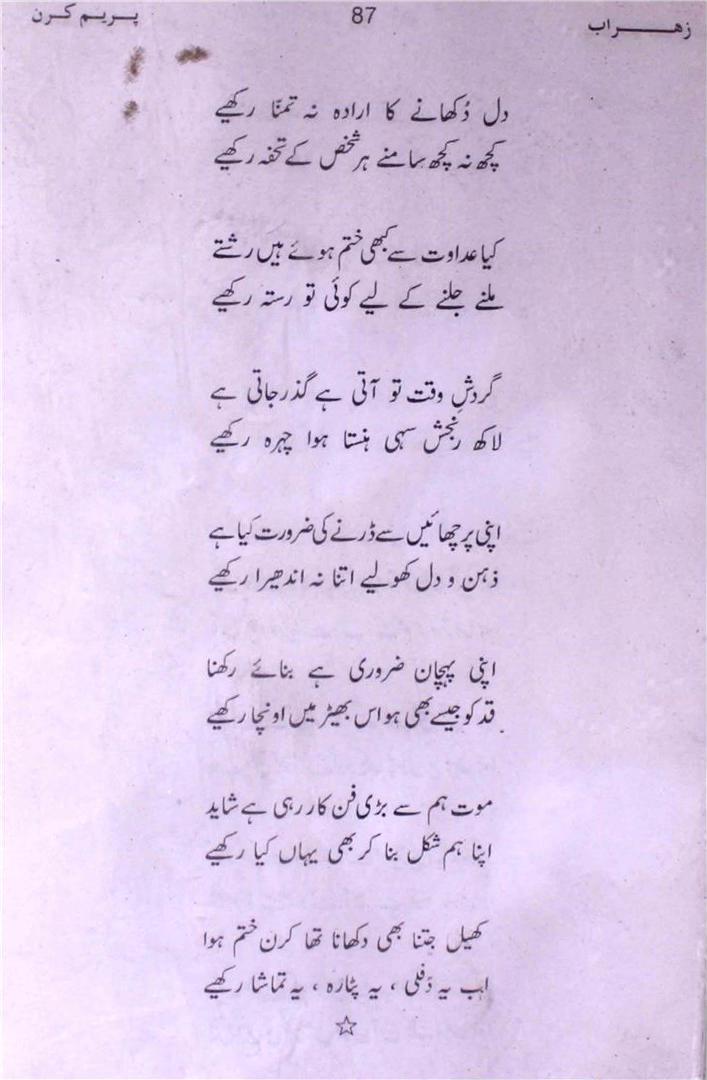 زهراب
87
پریم کرن
دل دُکھانے کا ارادہ نہ تمنّا رکھیے
کچھ نہ کچھ سامنے ہر شخص کے تحفہ رکھیے
کیا عداوت سے کبھی ختم ہوئے ہیں رشتے
ملنے جلنے کے لیے کوئی تو رستہ رکھیے
گردشِ وقت تو آتی ہے گذر جاتی ہے
لاکھ رنجش سہی ہنستا ہوا چہرہ رکھیے
اپنی پرچھائیں سے ڈرنے کی ضرورت کیا ہے
ذہن و دل کھولیے اتنا نہ اندھیرا رکھیے
اپنی پہچان ضروری ہے بنائے رکھنا
قد کو جیسے بھی ہو اس بھیڑ میں اونچا رکھیے
موت ہم سے بڑی فن کار رہی ہے شاید
اپنا ہم شکل بنا کر بھی یہاں کیا رکھیے
کھیل جتنا بھی دکھانا تھا کرن ختم ہوا
اب یہ دَفلی ، یہ پٹارہ ، یہ تماشا رکھیے
☆